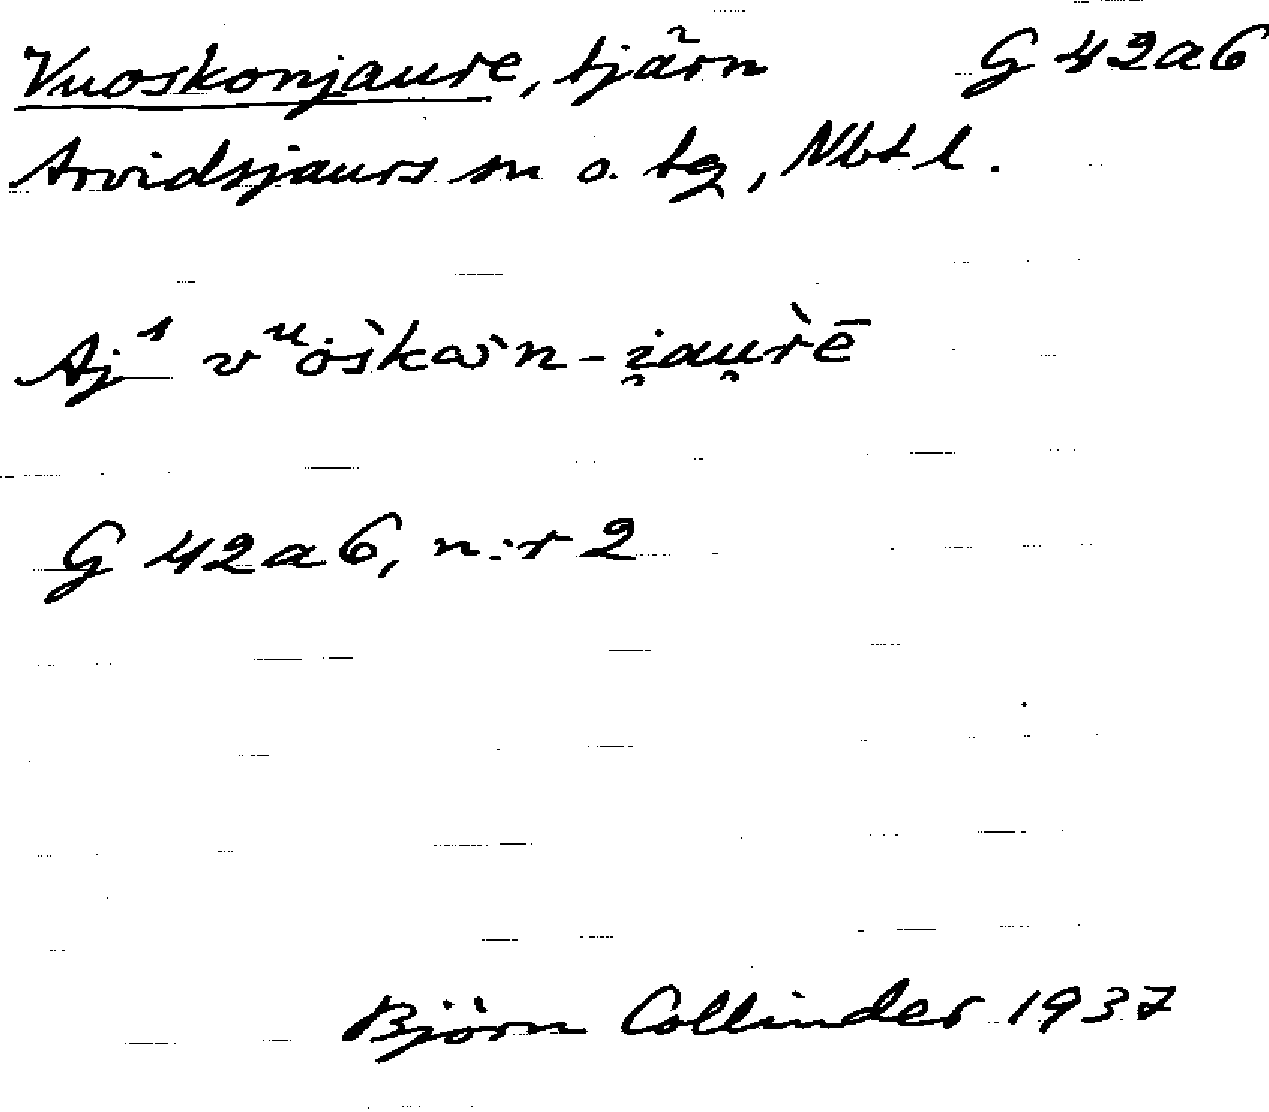 Vuoskonjaure, tjärn G 42a6
Arvidsjaurs sn o. tg, Nbt l.
Aj¹ vᵘȯs̀kàn-i̯au̯r̀ē
G 42a6, n:r 2
Björn Collinder 1937